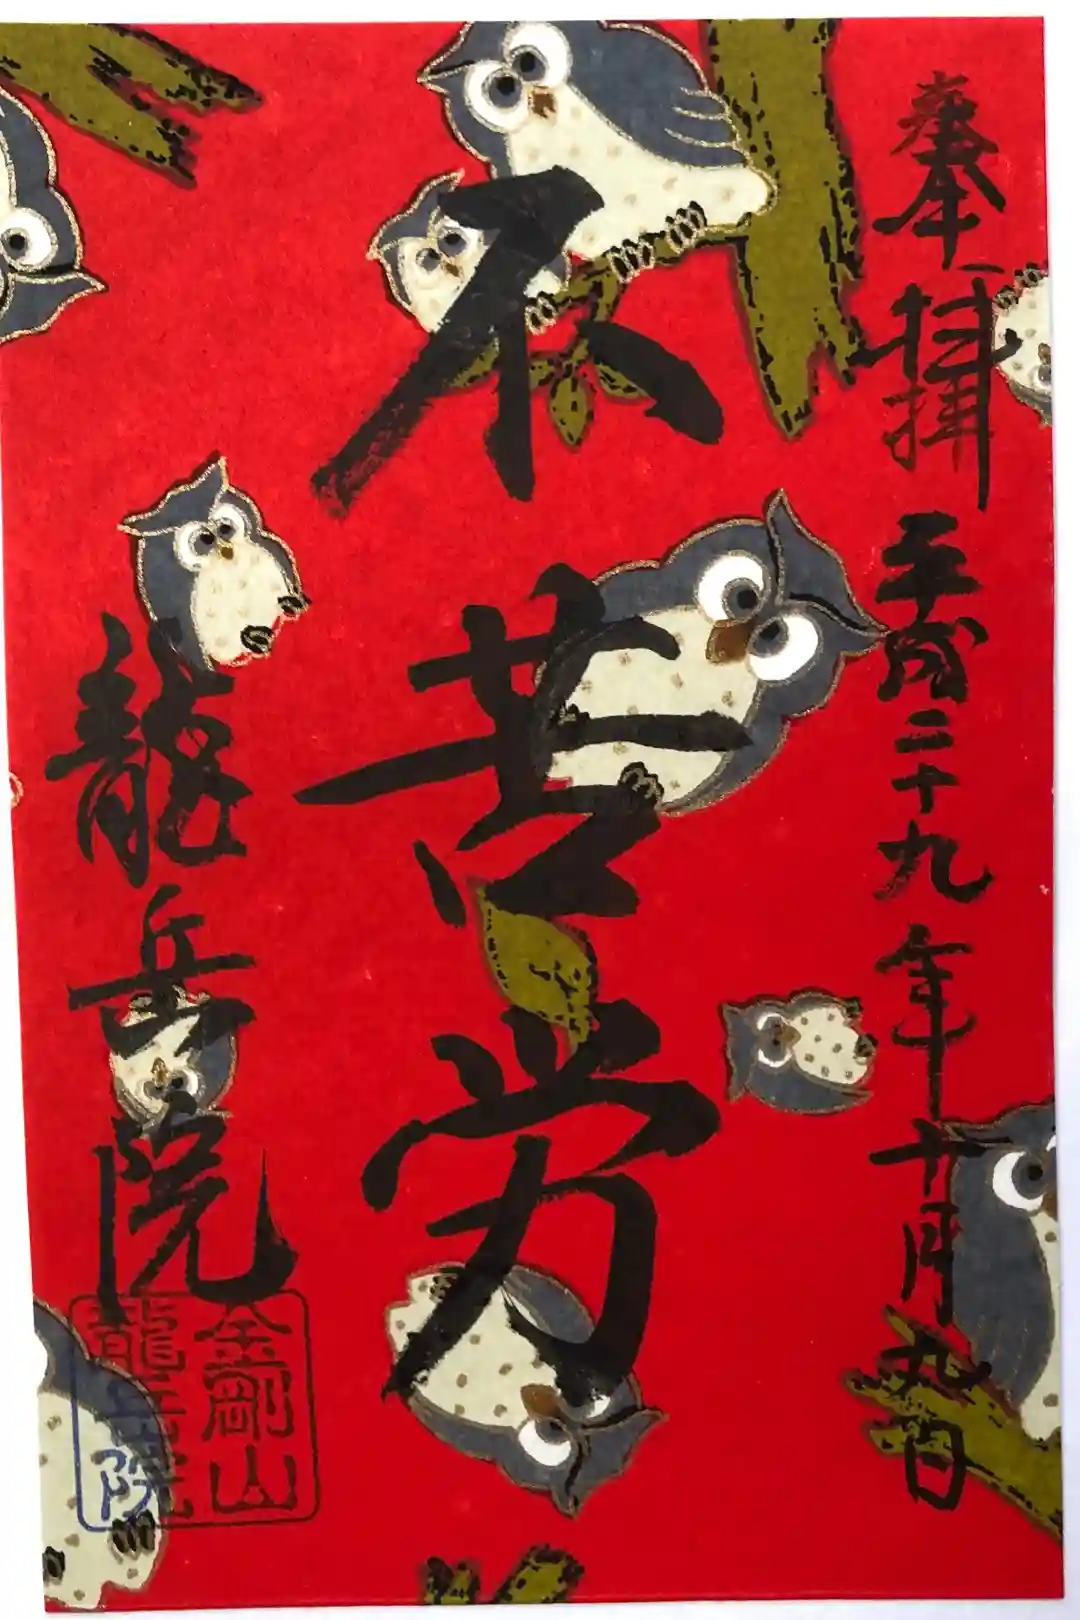 奉拝 平成二十九年十月九日
不苦労
龍岳院
金剛山
龍岳院